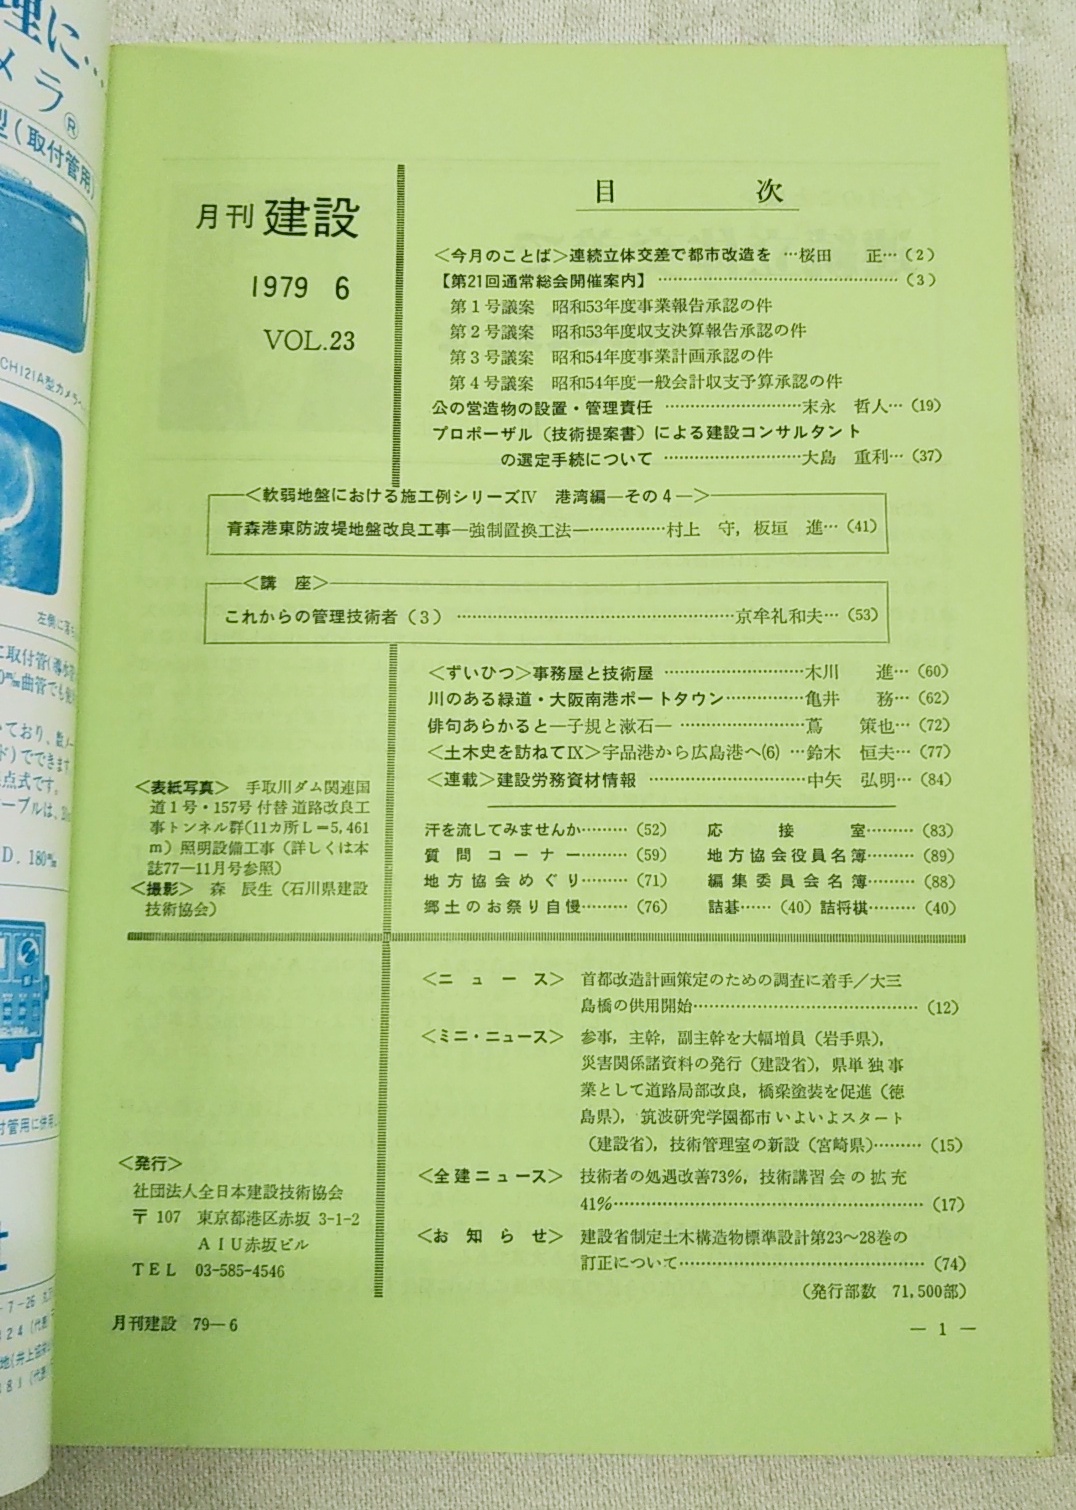 理に…
メラ®
型(取付管用)
CH121A型カメラ
月刊 建設
1979 6
VOL.23
目 次
<今月のことば>連続立体交差で都市改造を …桜田 正…(2)
【第21回通常総会開催案内】……………………………………(3)
第1号議案 昭和53年度事業報告承認の件
第2号議案 昭和53年度収支決算報告承認の件
第3号議案 昭和54年度事業計画承認の件
第4号議案 昭和54年度一般会計収支予算承認の件
公の営造物の設置・管理責任 ……………………末永 哲人…(19)
プロポーザル(技術提案書)による建設コンサルタント
の選定手続について ……………………大島 重利…(37)
<軟弱地盤における施工例シリーズⅣ 港湾編—その4—>
青森港東防波堤地盤改良工事—強制置換工法—……………村上 守,板垣 進…(41)
<講 座>
これからの管理技術者(3) ……………………………………………京牟礼和夫…(53)
<ずいひつ>事務屋と技術屋 ……………………木川 進…(60)
川のある緑道・大阪南港ポートタウン……………亀井 務…(62)
俳句あらかると—子規と漱石— …………………蔦 策也…(72)
<土木史を訪ねてⅨ>宇品港から広島港へ(6) …鈴木 恒夫…(77)
<連載>建設労務資材情報 ………………………中矢 弘明…(84)
汗を流してみませんか………(52) 応接室………(83)
質問コーナー………(59) 地方協会役員名簿………(89)
地方協会めぐり………(71) 編集委員会名簿………(88)
郷土のお祭り自慢………(76) 詰碁……(40) 詰将棋………(40)
<表紙写真> 手取川ダム関連国
道1号・157号付替道路改良工
事トンネル群(11カ所L=5,461
m)照明設備工事(詳しくは本
誌77—11月号参照)
<撮影> 森 辰生(石川県建設
技術協会)
<ニュース> 首都改造計画策定のための調査に着手/大三
島橋の供用開始…………………………………(12)
<ミニ・ニュース> 参事,主幹,副主幹を大幅増員(岩手県),
災害関係諸資料の発行(建設省),県単独事
業として道路局部改良,橋梁塗装を促進(徳
島県),筑波研究学園都市いよいよスタート
(建設省),技術管理室の新設(宮崎県)………(15)
<全建ニュース> 技術者の処遇改善73%,技術講習会の拡充
41%………………………………………………(17)
<お知らせ> 建設省制定土木構造物標準設計第23〜28巻の
訂正について……………………………………(74)
(発行部数 71,500部)
<発行>
社団法人全日本建設技術協会
〒107 東京都港区赤坂 3-1-2
AIU赤坂ビル
TEL 03-585-4546
月刊建設 79—6
— 1 —